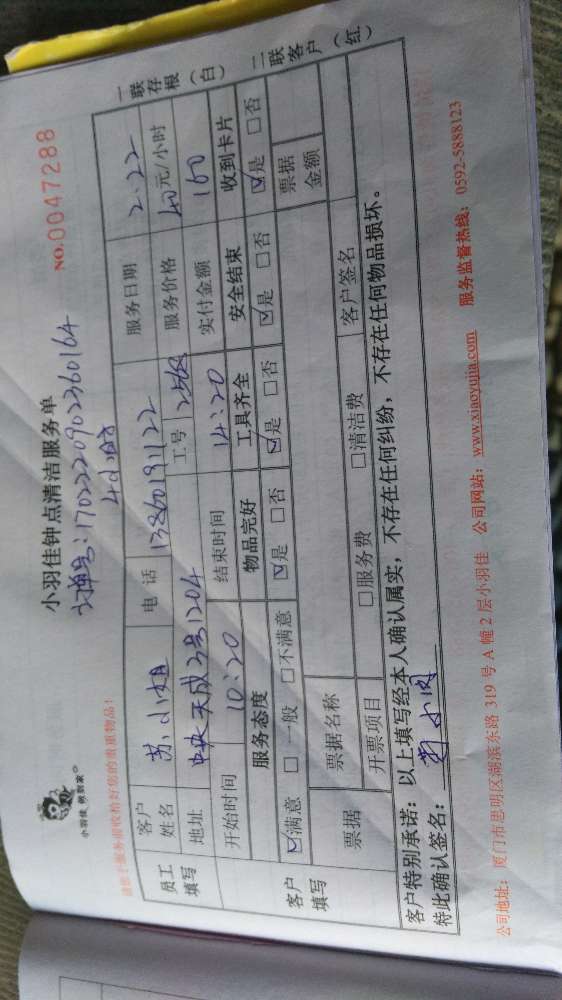 小羽佳 例到家
小羽佳钟点清洁服务单
NO.0047288
订单号:1702220902360164
4小时
客户姓名 苏小姐 电话 13860191122 服务日期 2.22
地址 中央天成2号1204 工号 服务价格 40元/小时
开始时间 10:20 结束时间 14:20 实付金额 160
员工填写
服务态度 物品完好 工具齐全 安全结束 收到卡片
☑满意 □一般 □不满意 ☑是 □否 ☑是 □否 ☑是 □否 ☑是 □否
客户填写
票据 票据名称 票据金额
开票项目 □服务费 □清洁费 客户签名
一联存根(白) 二联客户(红)
客户特别承诺:以上填写经本人确认属实,不存在任何纠纷,不存在任何物品损坏。
特此确认签名:
公司地址:厦门市思明区湖滨东路 319 号 A 幢 2 层小羽佳 公司网站:www.xiaoyujia.com / 服务监督热线:0592-5888123